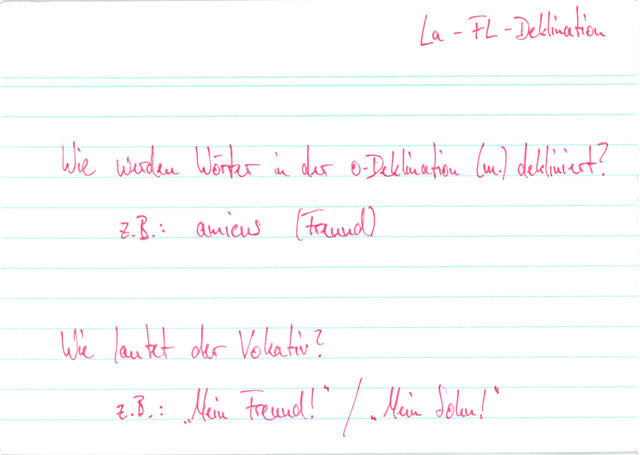 La - FL - Deklination
Wie werden Wörter in der o-Deklination (m.) dekliniert?
z.B.: amicus (Freund)
Wie lautet der Vokativ?
z.B.: „Mein Freund!“ / „Mein Sohn!“